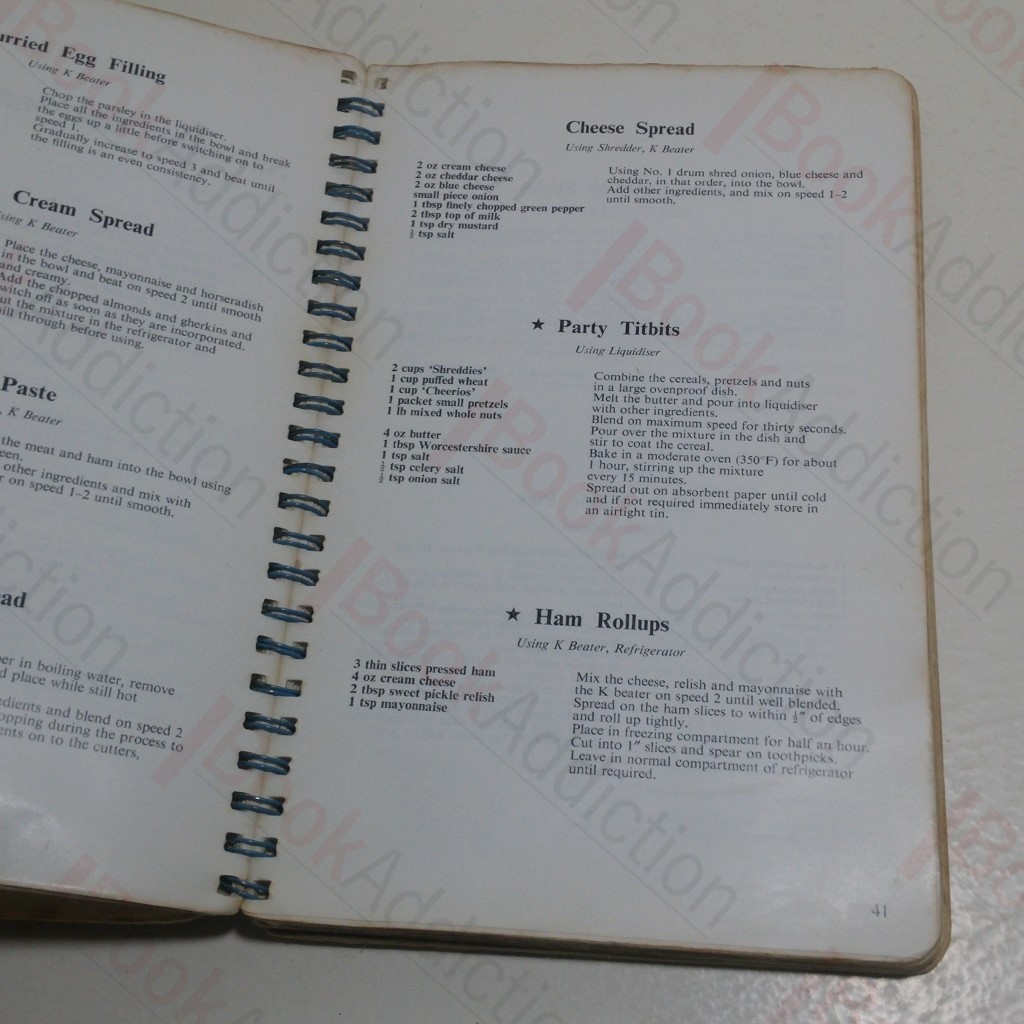 urried Egg Filling
Using K Beater
Chop the parsley in the liquidiser.
Place all the ingredients in the bowl and break
the eggs up a little before switching on to
speed 1.
Gradually increase to speed 3 and beat until
the filling is an even consistency.
Cream Spread
sing K Beater
Place the cheese, mayonnaise and horseradish
in the bowl and beat on speed 2 until smooth
and creamy.
Add the chopped almonds and gherkins and
witch off as soon as they are incorporated.
ut the mixture in the refrigerator and
hill through before using.
Paste
, K Beater
the meat and ham into the bowl using
een.
other ingredients and mix with
r on speed 1–2 until smooth.
ad
per in boiling water, remove
d place while still hot
edients and blend on speed 2
opping during the process to
ents on to the cutters,
Cheese Spread
Using Shredder, K Beater
2 oz cream cheese
2 oz cheddar cheese
2 oz blue cheese
small piece onion
1 tbsp finely chopped green pepper
2 tbsp top of milk
1 tsp dry mustard
½ tsp salt
Using No. 1 drum shred onion, blue cheese and
cheddar, in that order, into the bowl.
Add other ingredients, and mix on speed 1–2
until smooth.
★ Party Titbits
Using Liquidiser
2 cups ‘Shreddies’
1 cup puffed wheat
1 cup ‘Cheerios’
1 packet small pretzels
1 lb mixed whole nuts
4 oz butter
1 tbsp Worcestershire sauce
1 tsp salt
½ tsp celery salt
½ tsp onion salt
Combine the cereals, pretzels and nuts
in a large ovenproof dish.
Melt the butter and pour into liquidiser
with other ingredients.
Blend on maximum speed for thirty seconds.
Pour over the mixture in the dish and
stir to coat the cereal.
Bake in a moderate oven (350°F) for about
1 hour, stirring up the mixture
every 15 minutes.
Spread out on absorbent paper until cold
and if not required immediately store in
an airtight tin.
★ Ham Rollups
Using K Beater, Refrigerator
3 thin slices pressed ham
4 oz cream cheese
2 tbsp sweet pickle relish
1 tsp mayonnaise
Mix the cheese, relish and mayonnaise with
the K beater on speed 2 until well blended.
Spread on the ham slices to within ½″ of edges
and roll up tightly.
Place in freezing compartment for half an hour.
Cut into 1″ slices and spear on toothpicks.
Leave in normal compartment of refrigerator
until required.
41
BookAddiction